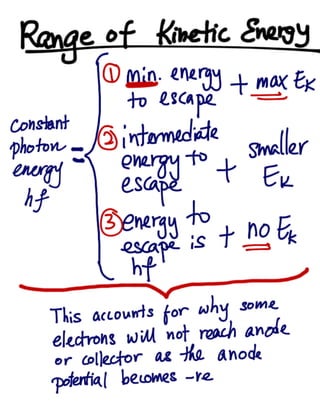 Range of Kinetic Energy
① min. energy + max Ek
to escape
Constant
photon
energy
hf
=
② intermediate
energy to
escape
+ smaller
Ek
③ energy to
escape is
hf
+ no Ek
This accounts for why some
electrons will not reach anode
or collector as the anode
potential becomes -ve